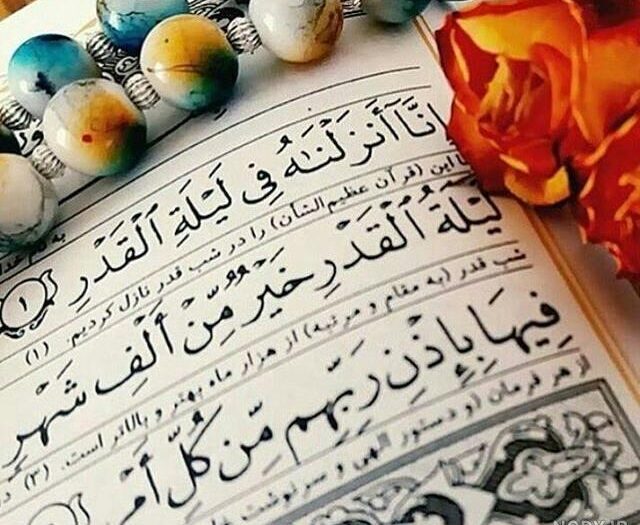 إِنَّآ أَنزَلْنَٰهُ فِى لَيْلَةِ ٱلْقَدْرِ ١
این (قرآن عظیم الشأن) را در شب قدر نازل کردیم. (۱)
لَيْلَةُ ٱلْقَدْرِ خَيْرٌ مِّنْ أَلْفِ شَهْرٍ
شب قدر (به مقام و مرتبه) از هزار ماه بهتر و بالاتر است. (۳)
فِيهَا بِإِذْنِ رَبِّهِم مِّن كُلِّ أَمْرٍ
از هر فرمان (و دستور الهی و سرنوشت